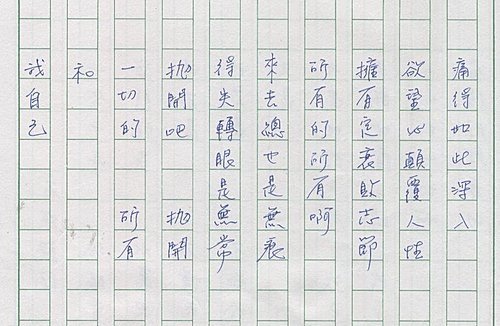 痛得如此深入
欲望心顛覆人性
擁有定衰敗志節
所有的所有啊
來去總也是無
得失轉眼是無常
拋開吧　拋開
一切的　所有
和
我自己